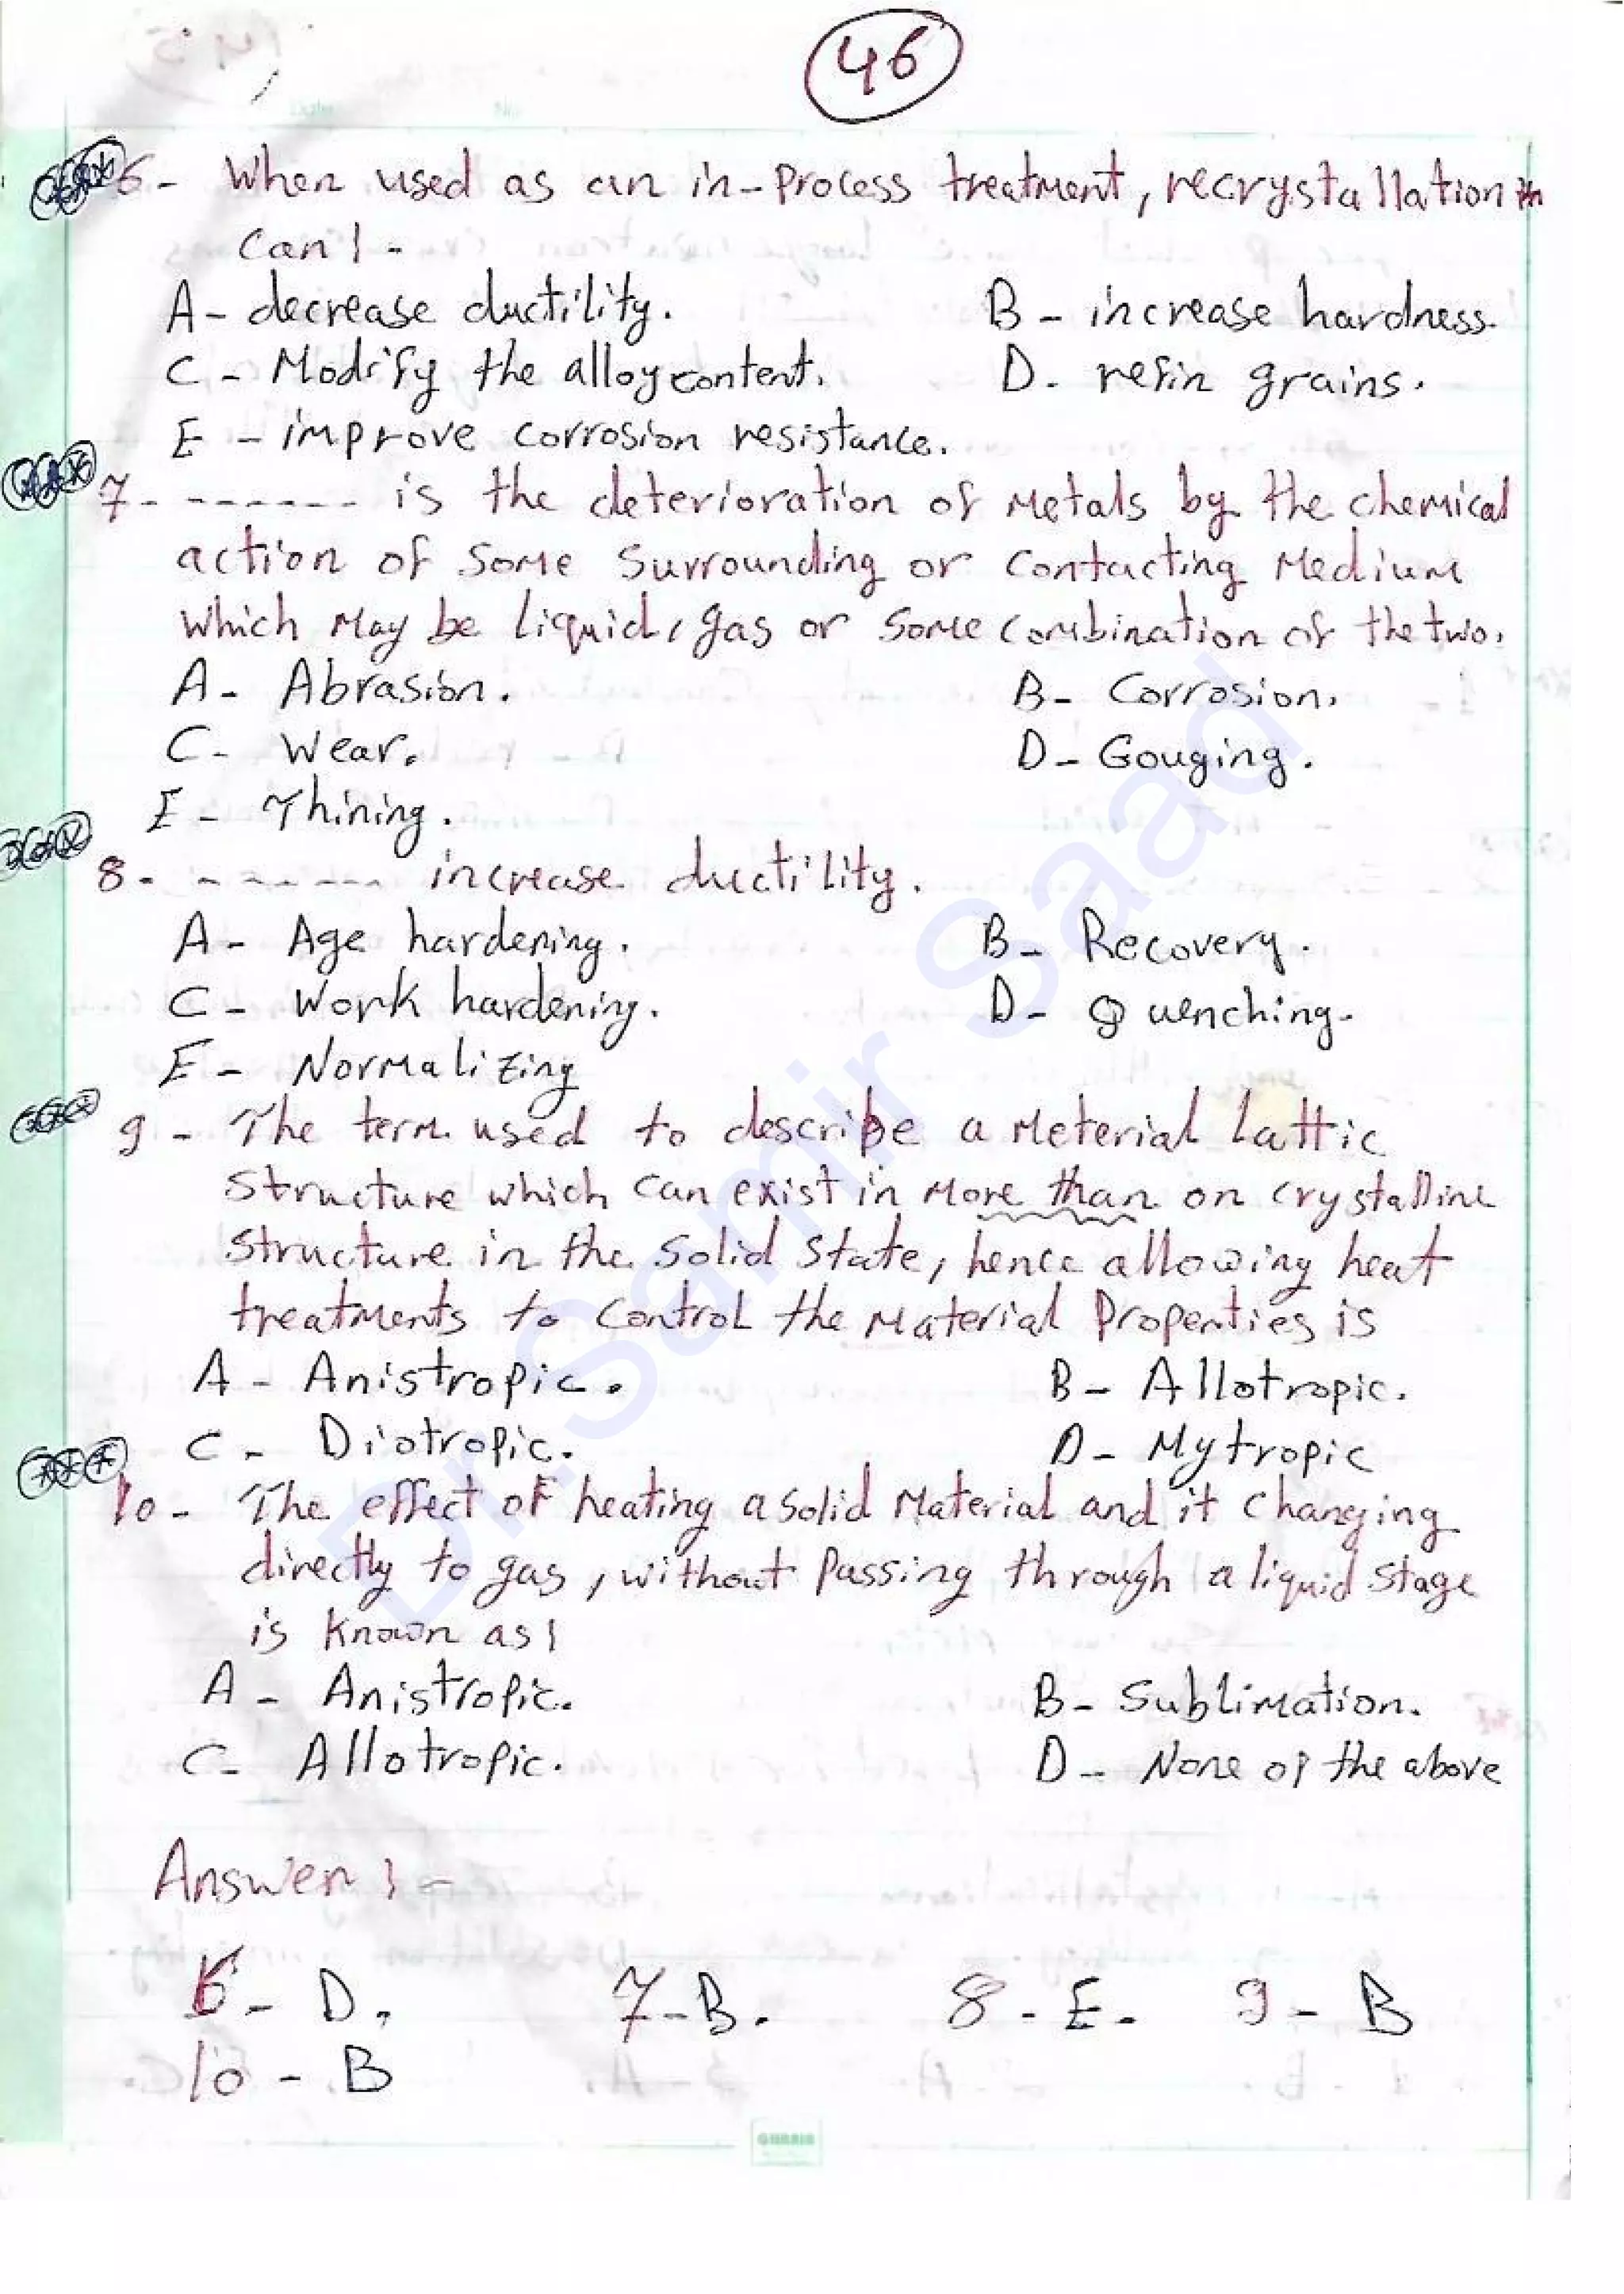 46
6 - When used as an in-Process treatment, recrystallation
can :-
A - decrease ductility.
B - increase hardness.
C - Modify the alloy content.
D - refin grains.
E - improve corrosion resistance.
7 - ------ is the deterioration of Metals by the chemical
action of Some Surrounding or Contacting Medium
which May be Liquid, gas or Some Combination of the two.
A - Abrasion.
B - Corrosion.
C - Wear.
D - Gouging.
E - Thining.
8 - ------ increase ductility.
A - Age hardening.
B - Recovery.
C - Work hardening.
D - Quenching.
E - Normalizing
9 - The term used to describe a Meterial Lattic
Structure which can exist in More than on crystalline
Structure in the Solid State, hence allowing heat
treatments to Control the Material Properties is
A - Anistropic.
B - Allotropic.
C - Diotropic.
D - Mytropic
10 - The effect of heating a Solid Material and it Changing
directly to gas, without Passing through a liquid Stage
is known as:
A - Anistropic.
B - Sublimation.
C - Allotropic.
D - None of the above
Answer :-
6 - D.
7 - B.
8 - E.
9 - B
10 - B
Dr. Samir Saad